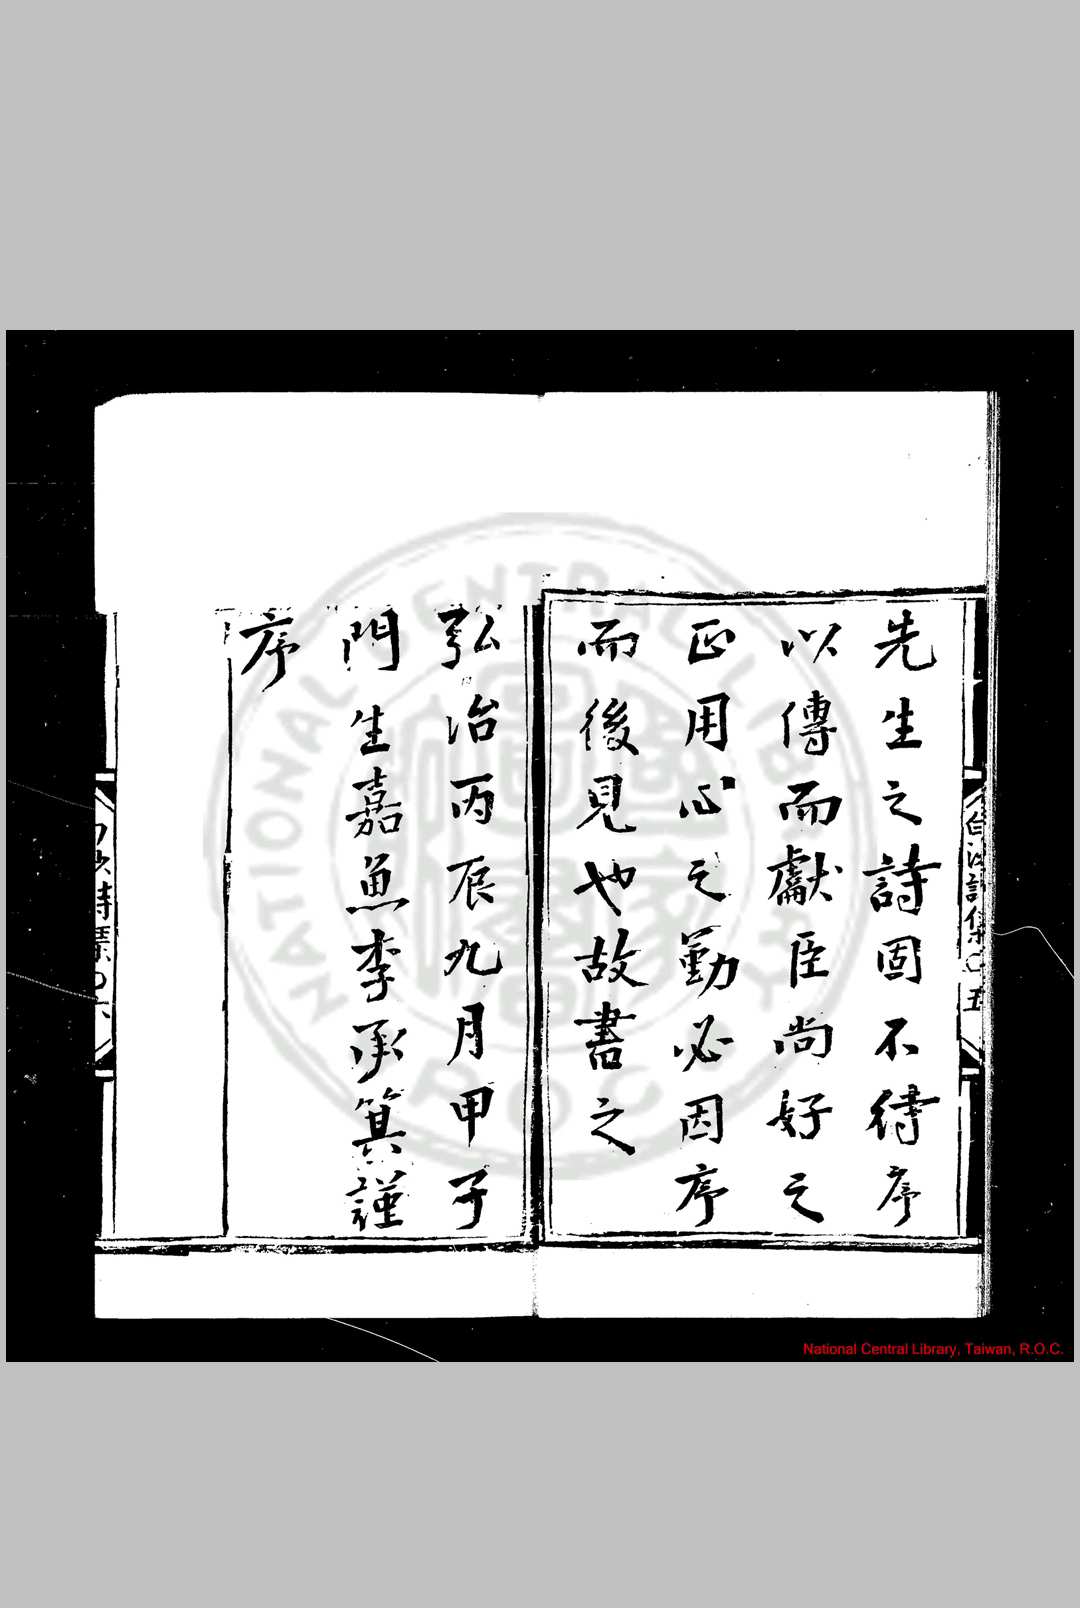 先生之詩固不待序
以傳而獻臣尚好之
正用心之勤必因序
而後見也故書之
弘治丙辰九月甲子
門生嘉魚李承箕謹
序
白沙詩集〇五
詩集〇六
NATIONAL CENTRAL LIBRARY
R.O.C.
National Central Library, Taiwan, R.O.C.